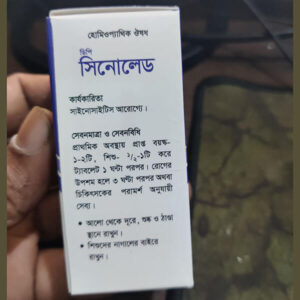 হোমিওপ্যাথিক ঔষধ
ডিপি
সিনোলেড
কার্যকারিতা
সাইনোসাইটিস আরোগ্যে।
সেবনমাত্রা ও সেবনবিধি
প্রাথমিক অবস্থায় প্রাপ্ত বয়স্ক-
১-২টি, শিশু- ১/২-১টি করে
ট্যাবলেট ১ ঘন্টা পরপর। রোগের
উপশম হলে ৩ ঘন্টা পরপর অথবা
চিকিৎসকের পরামর্শ অনুযায়ী
সেব্য।
• আলো থেকে দূরে, শুষ্ক ও ঠাণ্ডা
স্থানে রাখুন।
• শিশুদের নাগালের বাইরে
রাখুন।